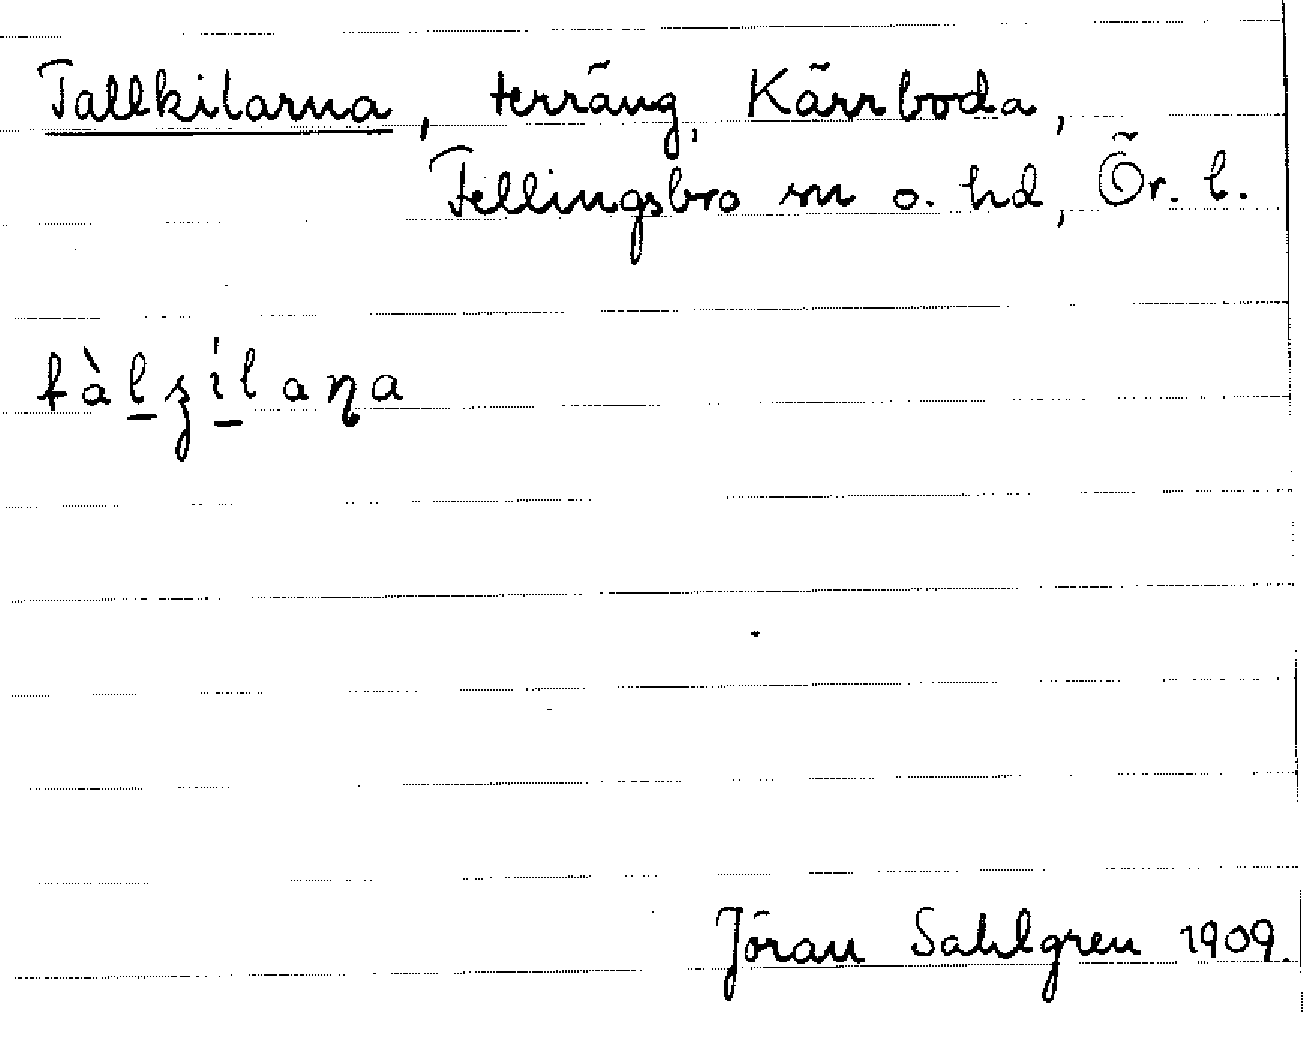 Tallkilarna, terräng, Kärrboda,
Fellingsbro sn o. hd, Ör. l.
tàlʒílaɳa
Jöran Sahlgren 1909.